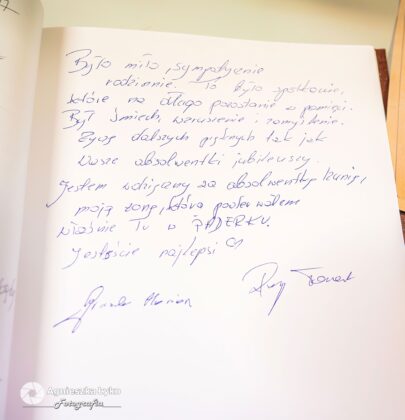 Było miło, sympatycznie
rodzinnie. To było spotkanie,
które na długo pozostanie w pamięci.
Był śmiech, wzruszenie i zamyślenie.
Życzę dalszych pięknych tak jak
Wasze absolwentki jubileuszy.
Jestem wdzięczny za absolwentkę
moją żonę, którą poderwałem
właśnie Tu w PADERKU.
Jesteście najlepsi
Marian
Agnieszka Łyko
Fotografia